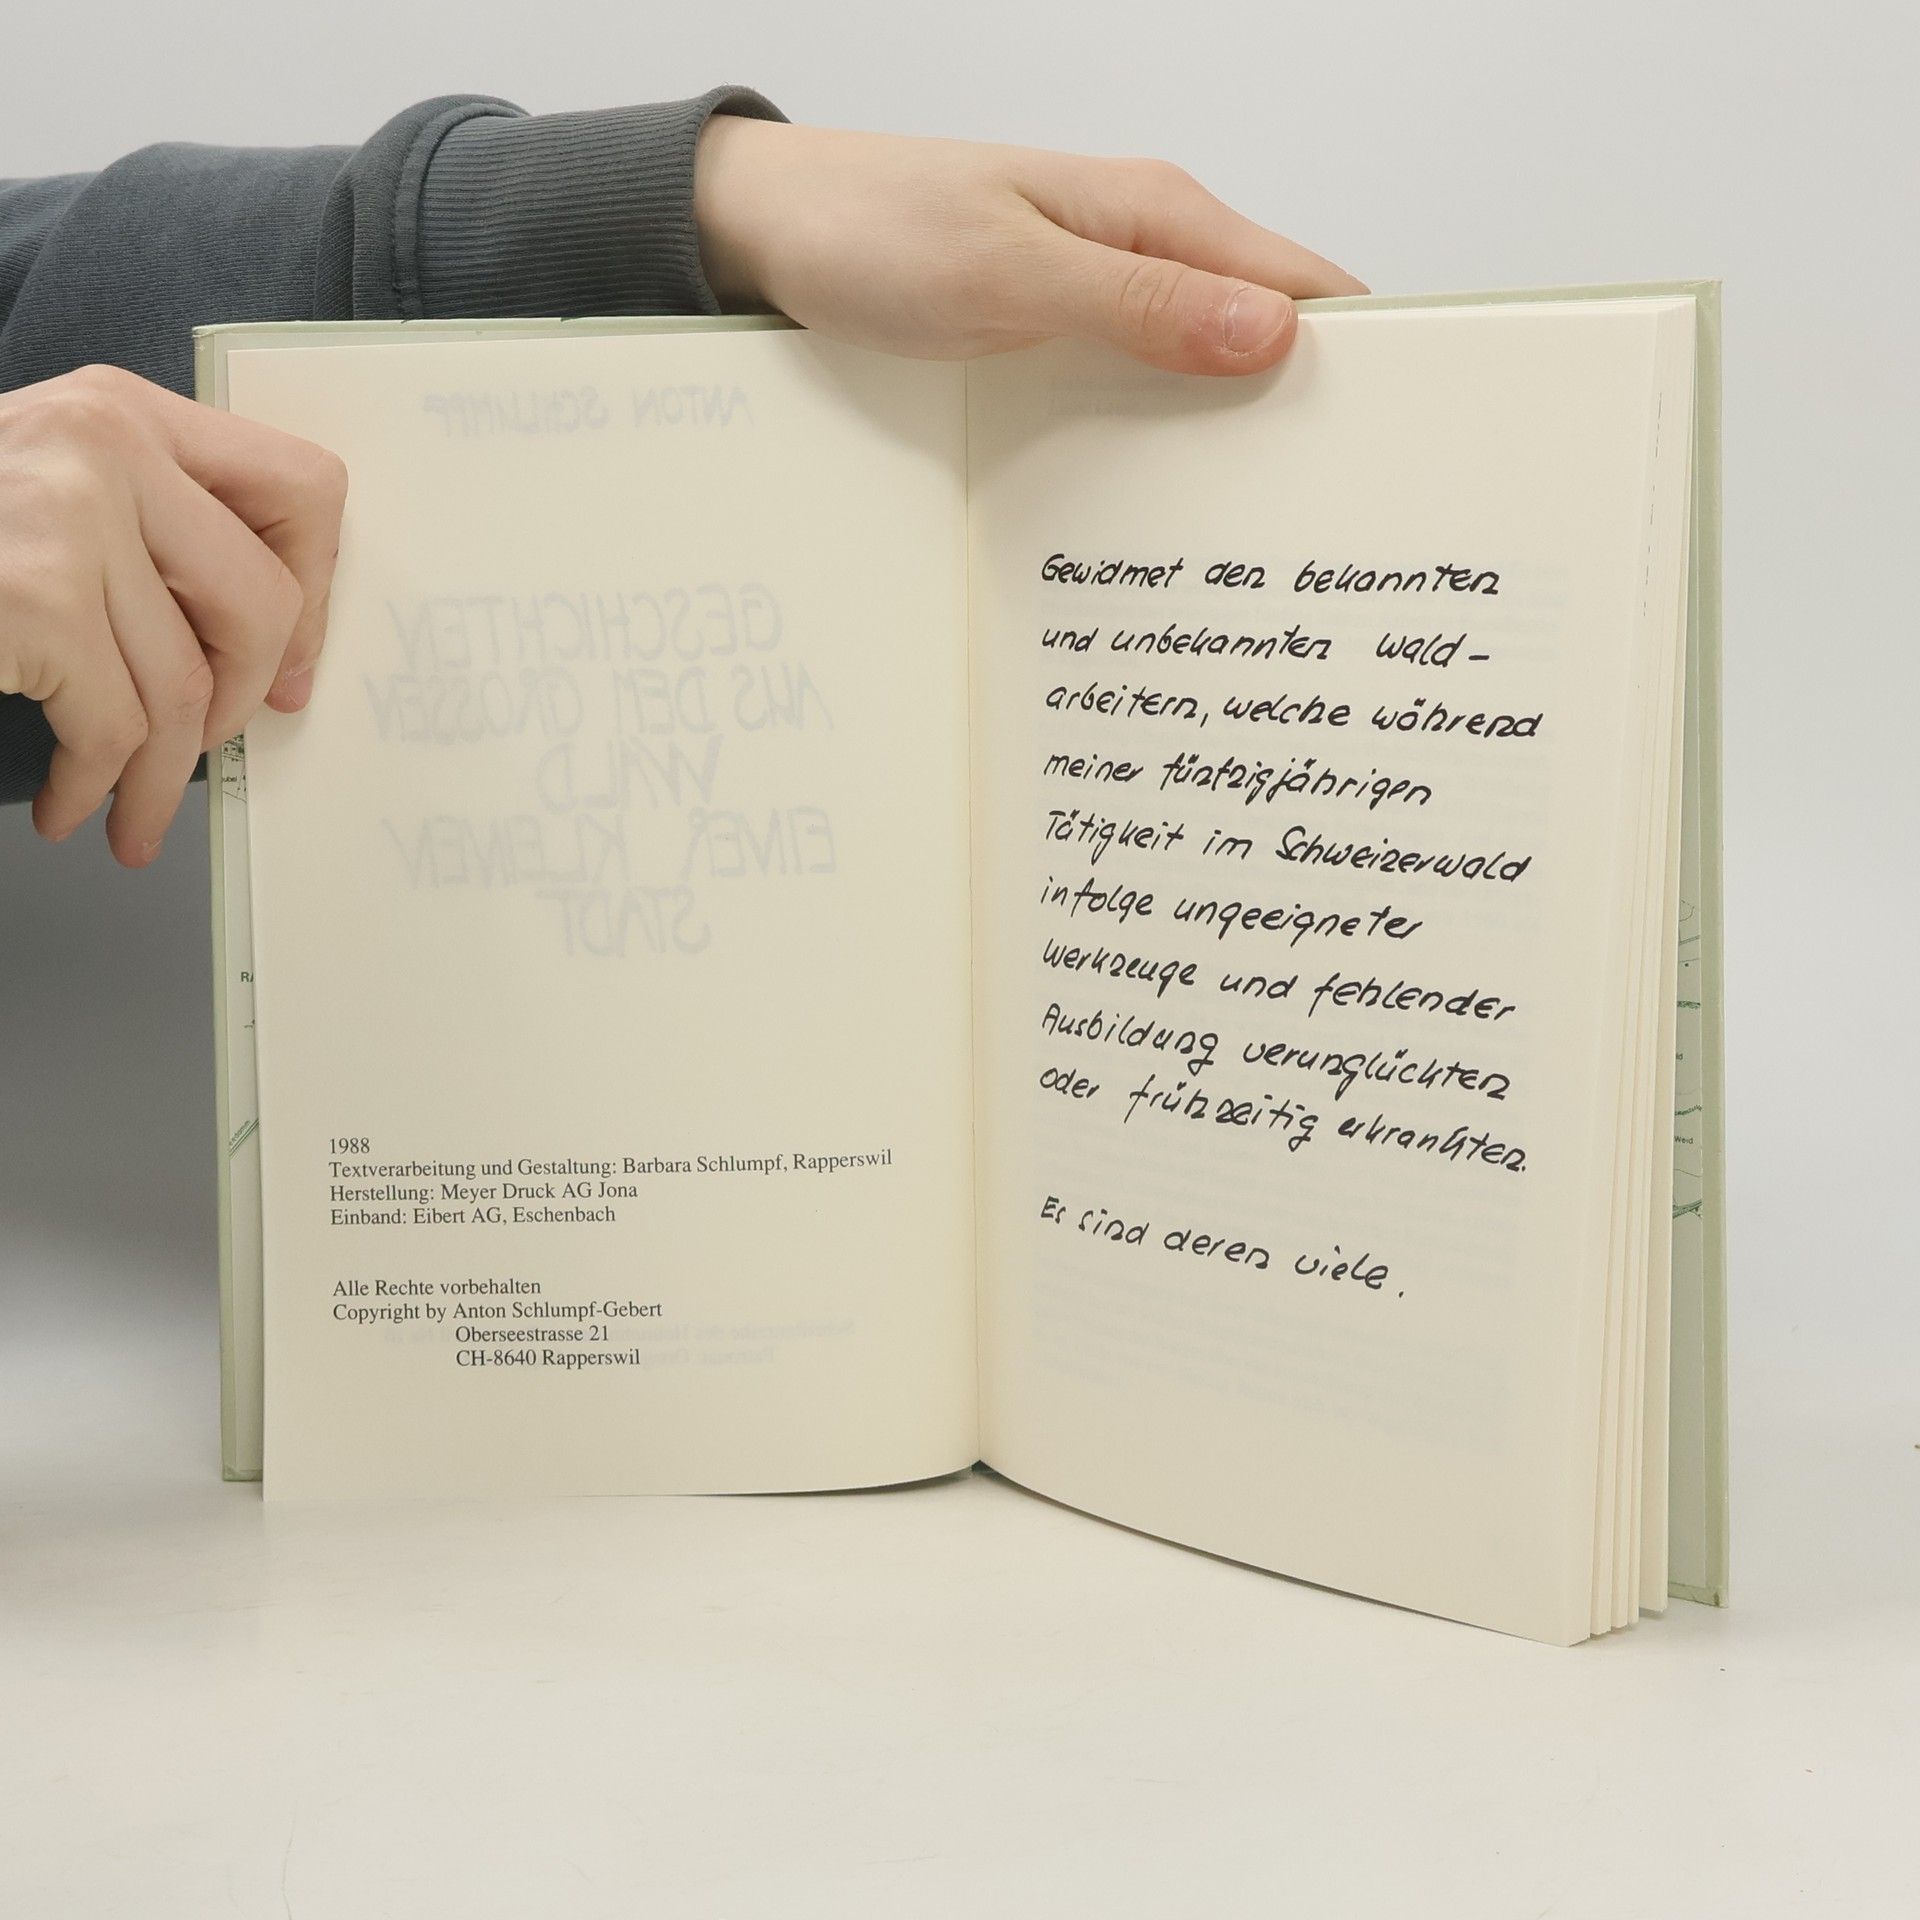 ANTON SCHLUMPF
GESCHICHTEN
AUS DEM GROSSEN
WALD
EINER KLEINEN
STADT
1988
Textverarbeitung und Gestaltung: Barbara Schlumpf, Rapperswil
Herstellung: Meyer Druck AG Jona
Einband: Eibert AG, Eschenbach
Alle Rechte vorbehalten
Copyright by Anton Schlumpf-Gebert
Oberseestrasse 21
CH-8640 Rapperswil
Gewidmet den bekannten
und unbekannten Wald-
arbeitern, welche während
meiner fünfzigjährigen
Tätigkeit im Schweizerwald
infolge ungeeigneter
Werkzeuge und fehlender
Ausbildung verunglückten
oder frühzeitig erkrankten.
Es sind deren viele.